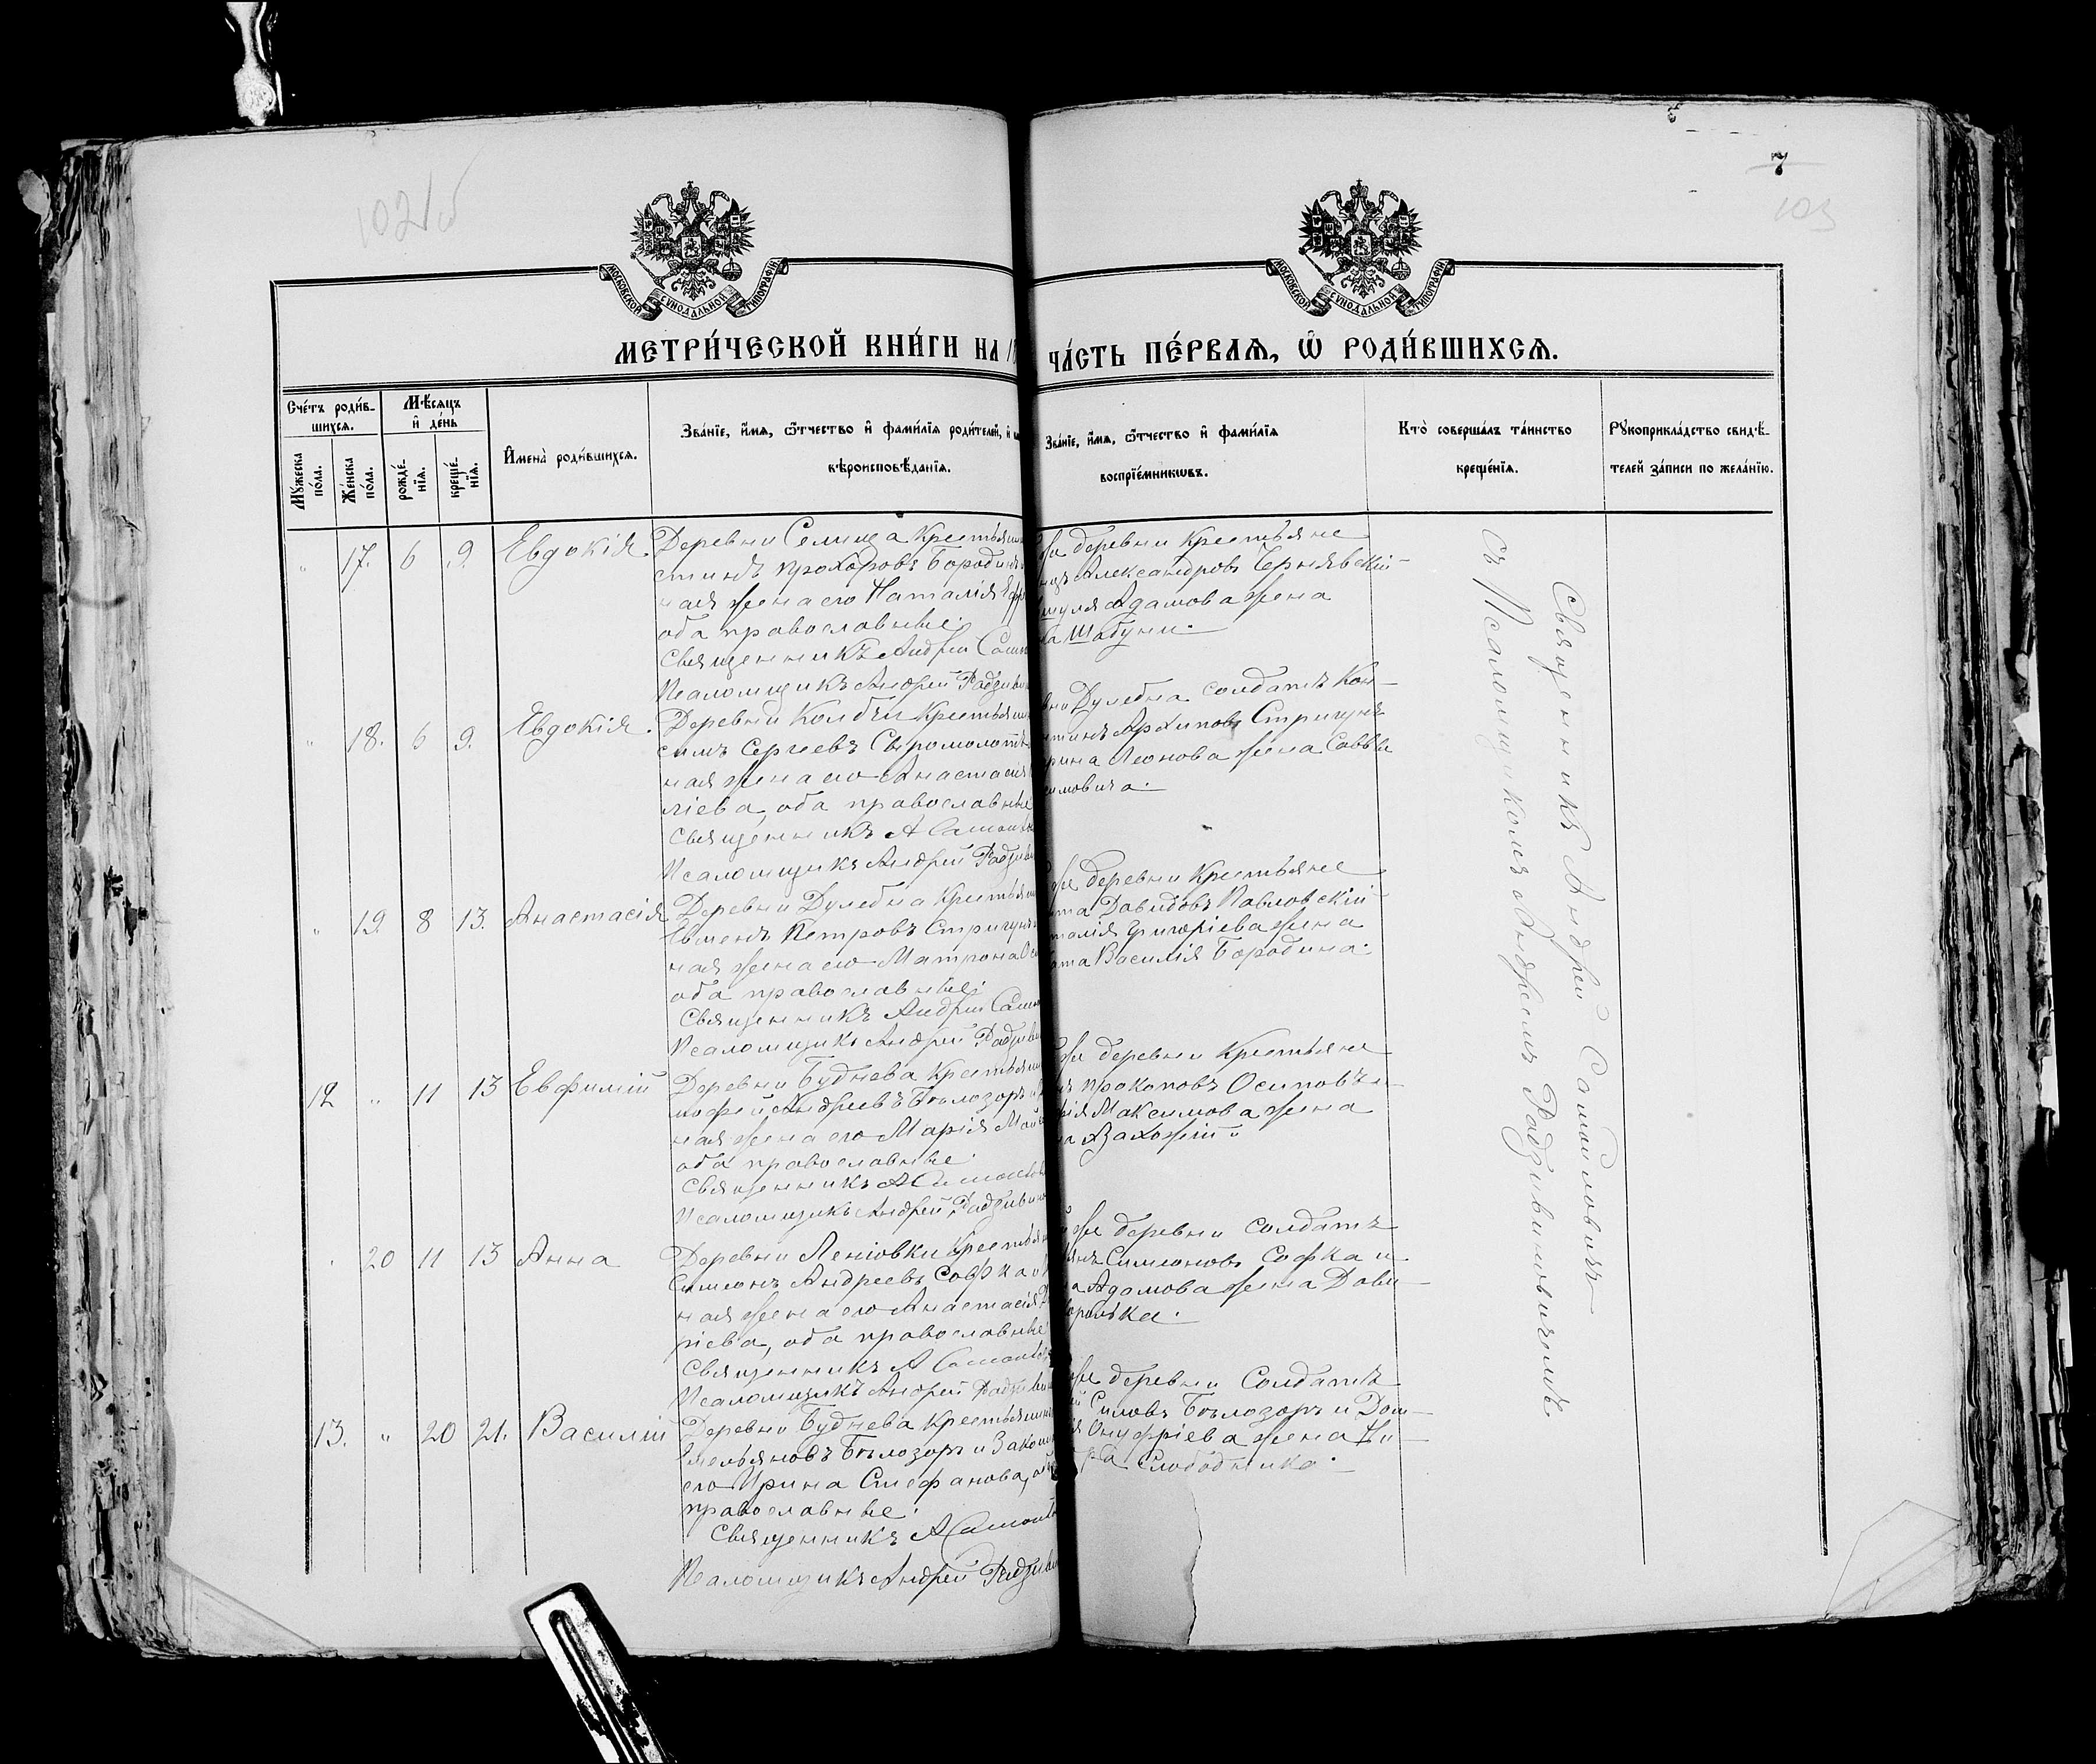 102 об
7
103
МОСКОВСКОЙ СѴНОДАЛЬНОЙ ТИПОГРАФІИ
МОСКОВСКОЙ СѴНОДАЛЬНОЙ ТИПОГРАФІИ
МЕТРИ́ЧЕСКОЙ КНИ́ГИ НА 1
ЧА́СТЬ ПЕ́РВАѦ, Ѡ҆ РОДИ́ВШИХСѦ.
Сче́тъ роди́в-
шихсѧ.
Мѣ́сѧцъ
и҆ де́нь
Мꙋ́жеска
по́ла.
Же́нска
по́ла.
рожде́-
нїѧ.
креще́-
нїѧ.
И҆мена̀ роди́вшихсѧ.
Зва́нїе, и҆́мѧ, ѻ҆́тчество и҆ фами́лїѧ роди́телей, и҆
вѣроисповѣ́данїѧ.
Зва́нїе, и҆́мѧ, ѻ҆́тчество и҆ фами́лїѧ
воспрїе́мникѡвъ.
Кто̀ соверша́лъ та́инство
креще́нїѧ.
Рꙋкоприкла́дство свидѣ́-
телей за́писи по жела́нїю.
" 17. 6 9. Евдокія.
Деревни Селища Крестьянин
стинъ Прохоровъ Бородинъ
ная жена его Наталія Ефр
оба православные.
Священникъ Андрей Само
Псаломщикъ Андрей Радзиви
же деревни Крестьяне
Александровъ Чернявскій
Адамова жена
Шабуни.
" 18. 6 9. Евдокія.
Деревни Колбчи Крестьянин
симъ Сергѣевъ Сыромолотъ
ная жена его Анастасія
ліева, оба православные
Священникъ А Самойл
Псаломщикъ Андрей Радзиви
Дулебна солдатъ Кон-
стинъ Архиповъ Стригунъ
рина Леонова жена Саввы
имовича.
" 19. 8 13. Анастасія
Деревни Дулебна Крестьянин
Евменъ Петровъ Стригунъ
ная жена его Матрона
оба православные.
Священникъ Андрей Само
Псаломщикъ Андрей Радзиви
же деревни Крестьяне
та Давидовъ Павловскій
талія Григоріева жена
ата Василія Бородина.
12 " 11 13 Евфимій
Деревни Буднева Крестьянин
мофей Андреевъ Бѣлозоръ
ная жена его Марія
оба православные.
Священникъ А Самойлов
Псаломщикъ Андрей Радзивино
же деревни Крестьяне
Прокоповъ Осиповъ и
Максимова жена
" 20 11 13 Анна
Деревни Леніовки Крестьян
Симеонъ Андреевъ Софка и
ная жена его Анастасія
ріева, оба православные
Священникъ А Самойло
Псаломщикъ Андрей Радзиви
же деревни солдатъ
Симеоновъ Софка и
Адамова жена Дави-
13. " 20 21. Василій
Деревни Буднева Крестьянин
Емельяновъ Бѣлозоръ и Закон
его Ирина Стефанова, об
православные.
Священникъ А Самойл
Псаломщикъ Андрей Радзиви
же деревни Солдатъ
Силовъ Бѣлозоръ и Дом-
Онуфріева жена
Слободника.
Священникъ Андрей Самойловичъ
съ Псаломщикомъ Андреемъ Радзивиновичемъ.